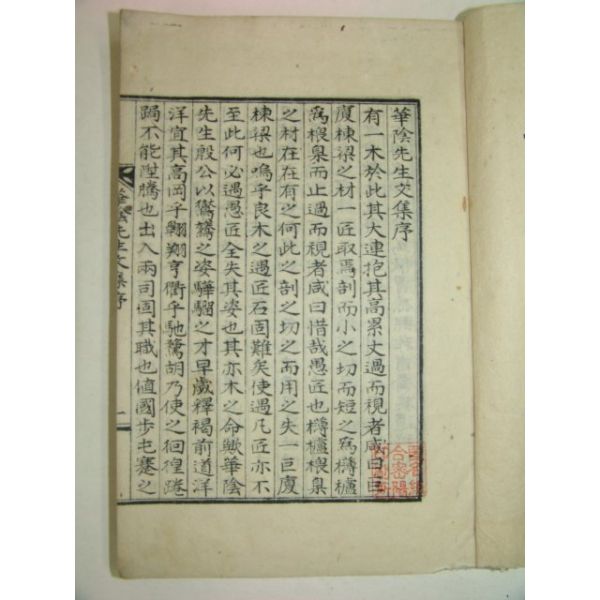 華陰先生文集序
有一木於此其大連抱其高累丈過而視者咸曰巨
廈棟梁之材一匠取焉剖而小之切而短之爲欂櫨
爲椳臬而止過而視者咸曰惜哉愚匠也欂櫨椳臬
之材在在有之何此之剖之切之而用之失一巨廈
棟梁也嗚乎良木之遇匠石固難矣使遇凡匠亦不
至此何必遇愚匠全失其姿也其亦木之命歟華陰
先生殷公以鸑鷟之姿驊騮之才早歲釋褐前道洋
洋宜其高岡乎翺翔亨衢乎馳騖胡乃使之徊徨踡
跼不能陞騰也出入兩司固其職也値國步屯蹇之
華陰先生文集序
一